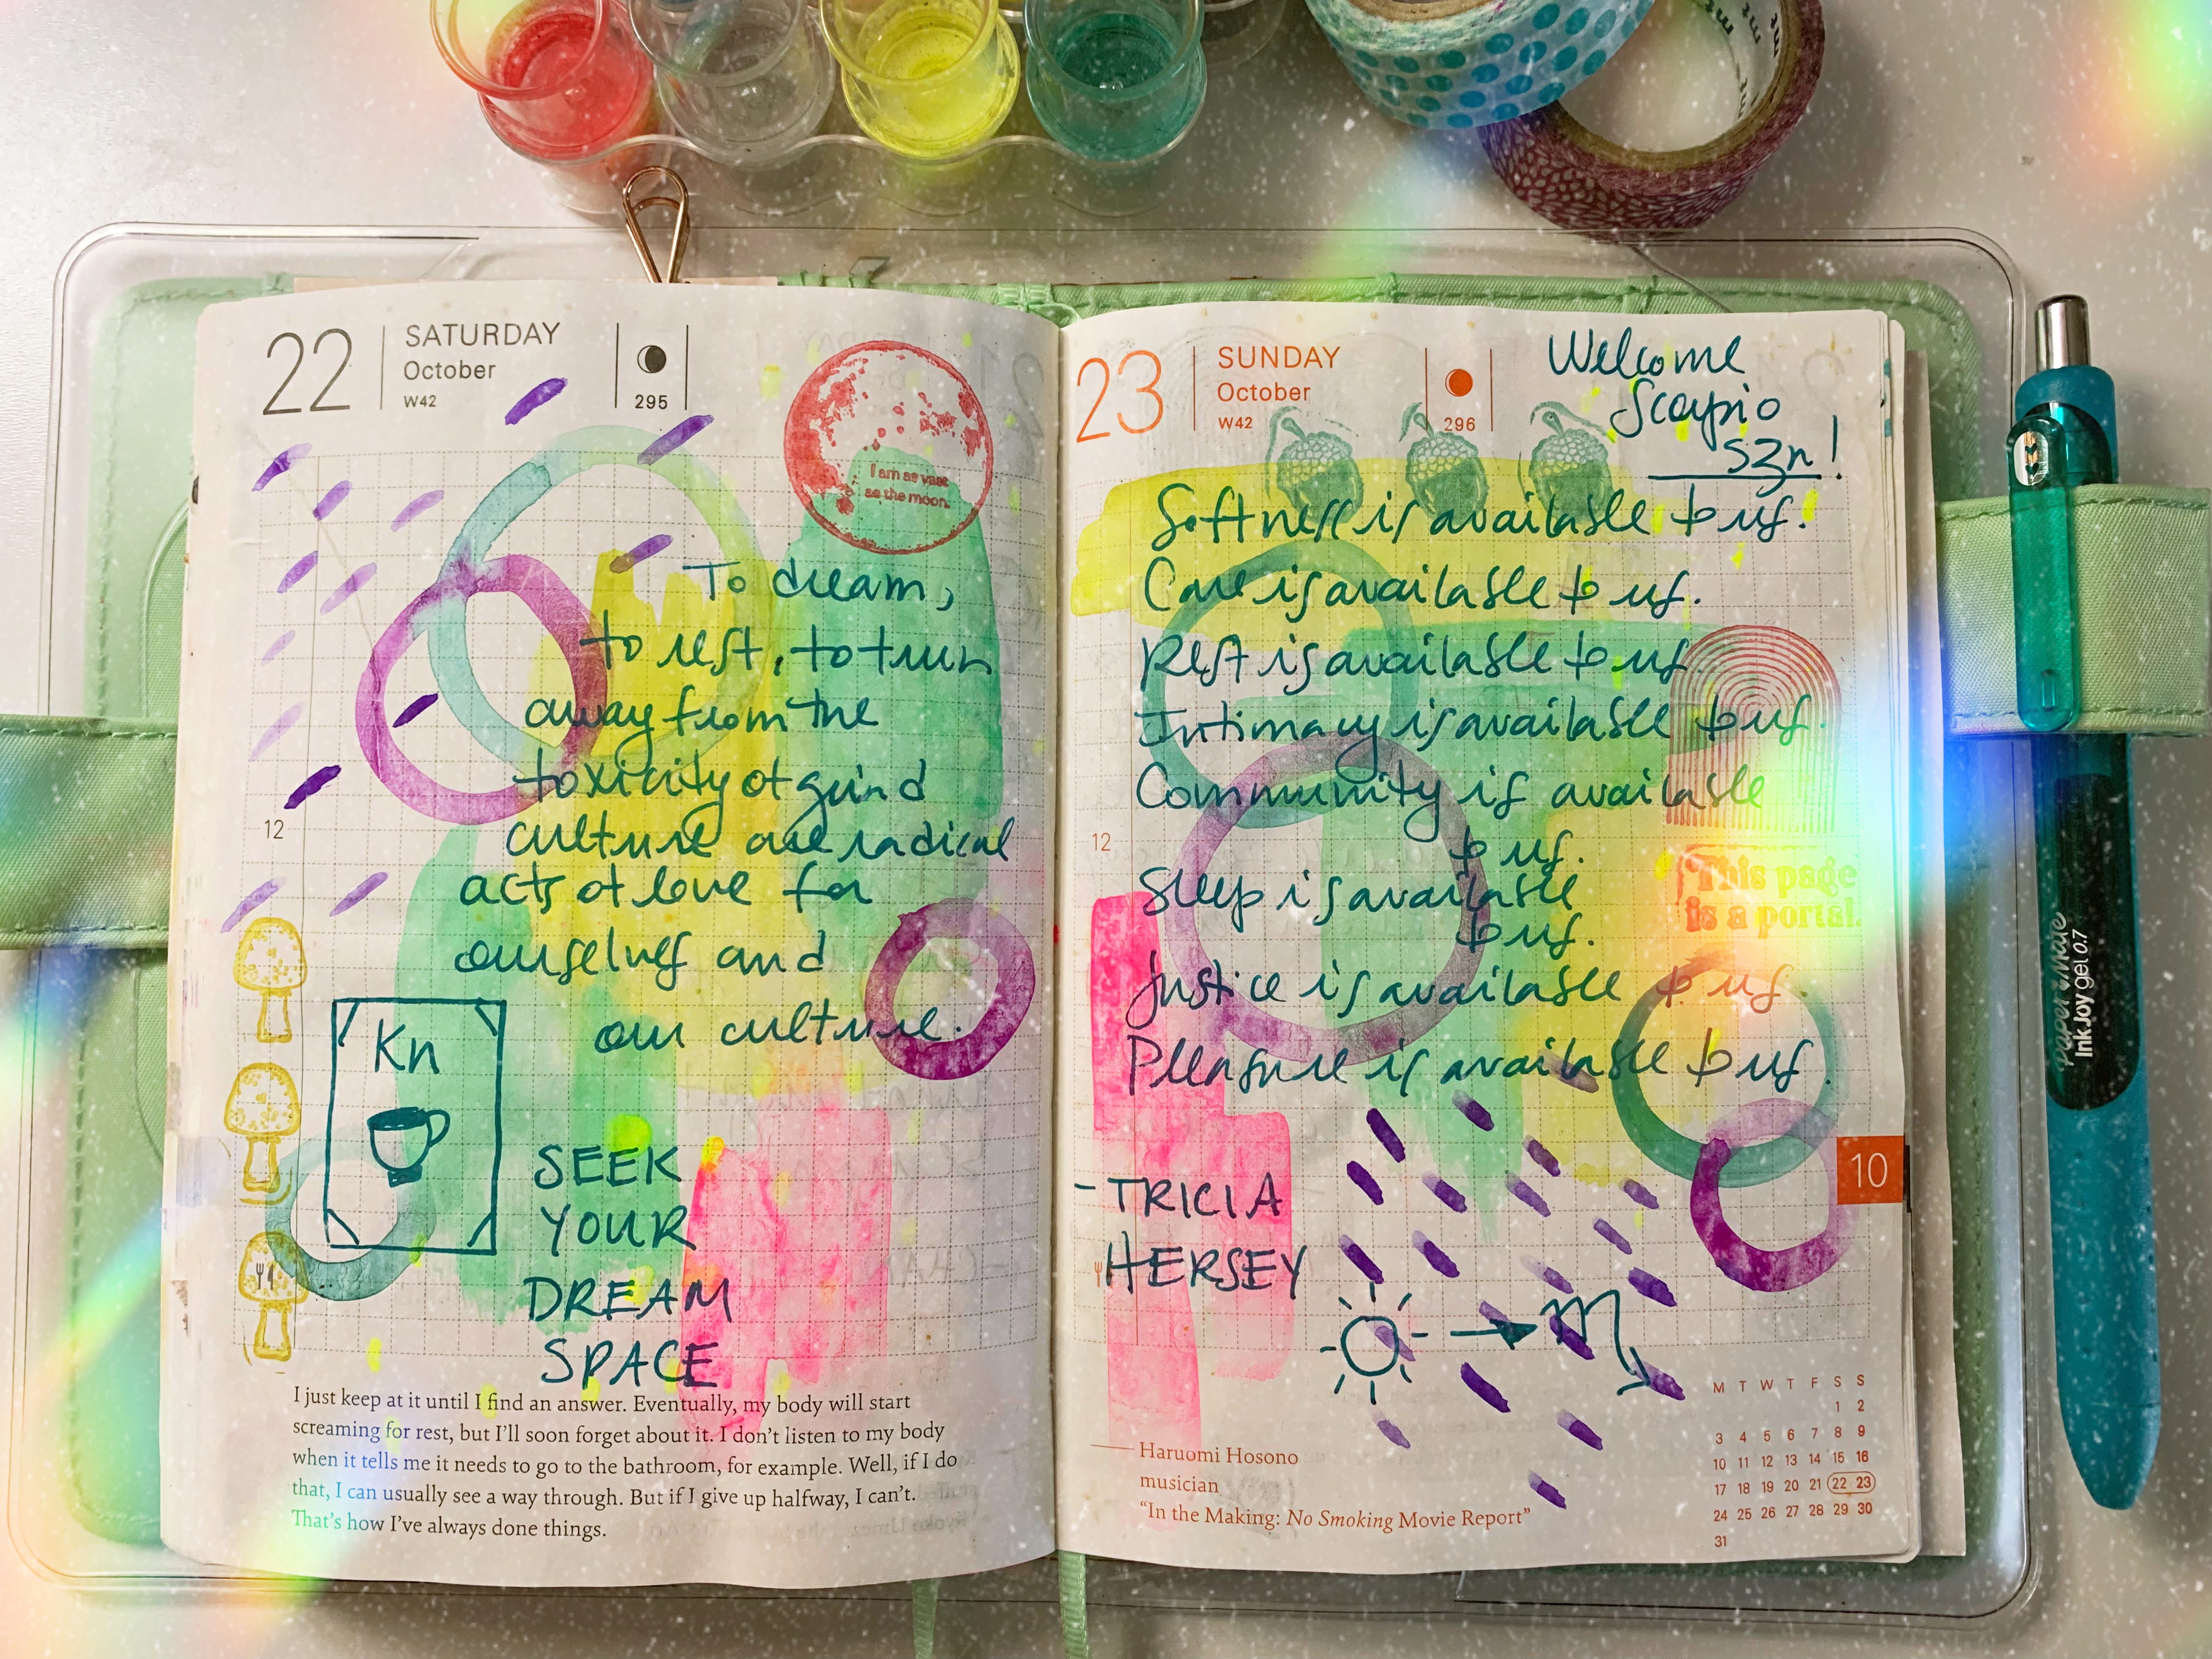 22
SATURDAY
October
W42
295
I am as vast
as the moon.
To dream,
to rest, to turn
away from the
toxicity of grind
culture are radical
acts of love for
ourselves and
our culture.
12
Kn
SEEK
YOUR
DREAM
SPACE
I just keep at it until I find an answer. Eventually, my body will start
screaming for rest, but I'll soon forget about it. I don't listen to my body
when it tells me it needs to go to the bathroom, for example. Well, if I do
that, I can usually see a way through. But if I give up halfway, I can't.
That's how I've always done things.
23
SUNDAY
October
W42
296
Welcome
Scorpio
szn!
Softness is available to us.
Care is available to us.
Rest is available to us.
Intimacy is available to us.
Community is available
to us.
Sleep is available
to us.
Justice is available to us.
Pleasure is available to us.
12
This page
is a portal.
- TRICIA
HERSEY
10
Haruomi Hosono
musician
"In the Making: No Smoking Movie Report"
M T W T F S S
1 2
3 4 5 6 7 8 9
10 11 12 13 14 15 16
17 18 19 20 21 22 23
24 25 26 27 28 29 30
31
Paper Mate
InkJoy gel 0.7
mt
mt
mt